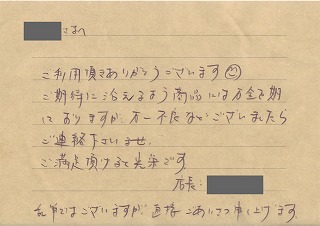 さまへ
ご利用頂きありがとうございます
ご期待に沿えるよう商品には万全を期
しておりますが、万一不良などございましたら
ご連絡下さいませ
ご満足頂けると光栄です
店長:
乱筆ではございますが、直接ごあいさつ申し上げます